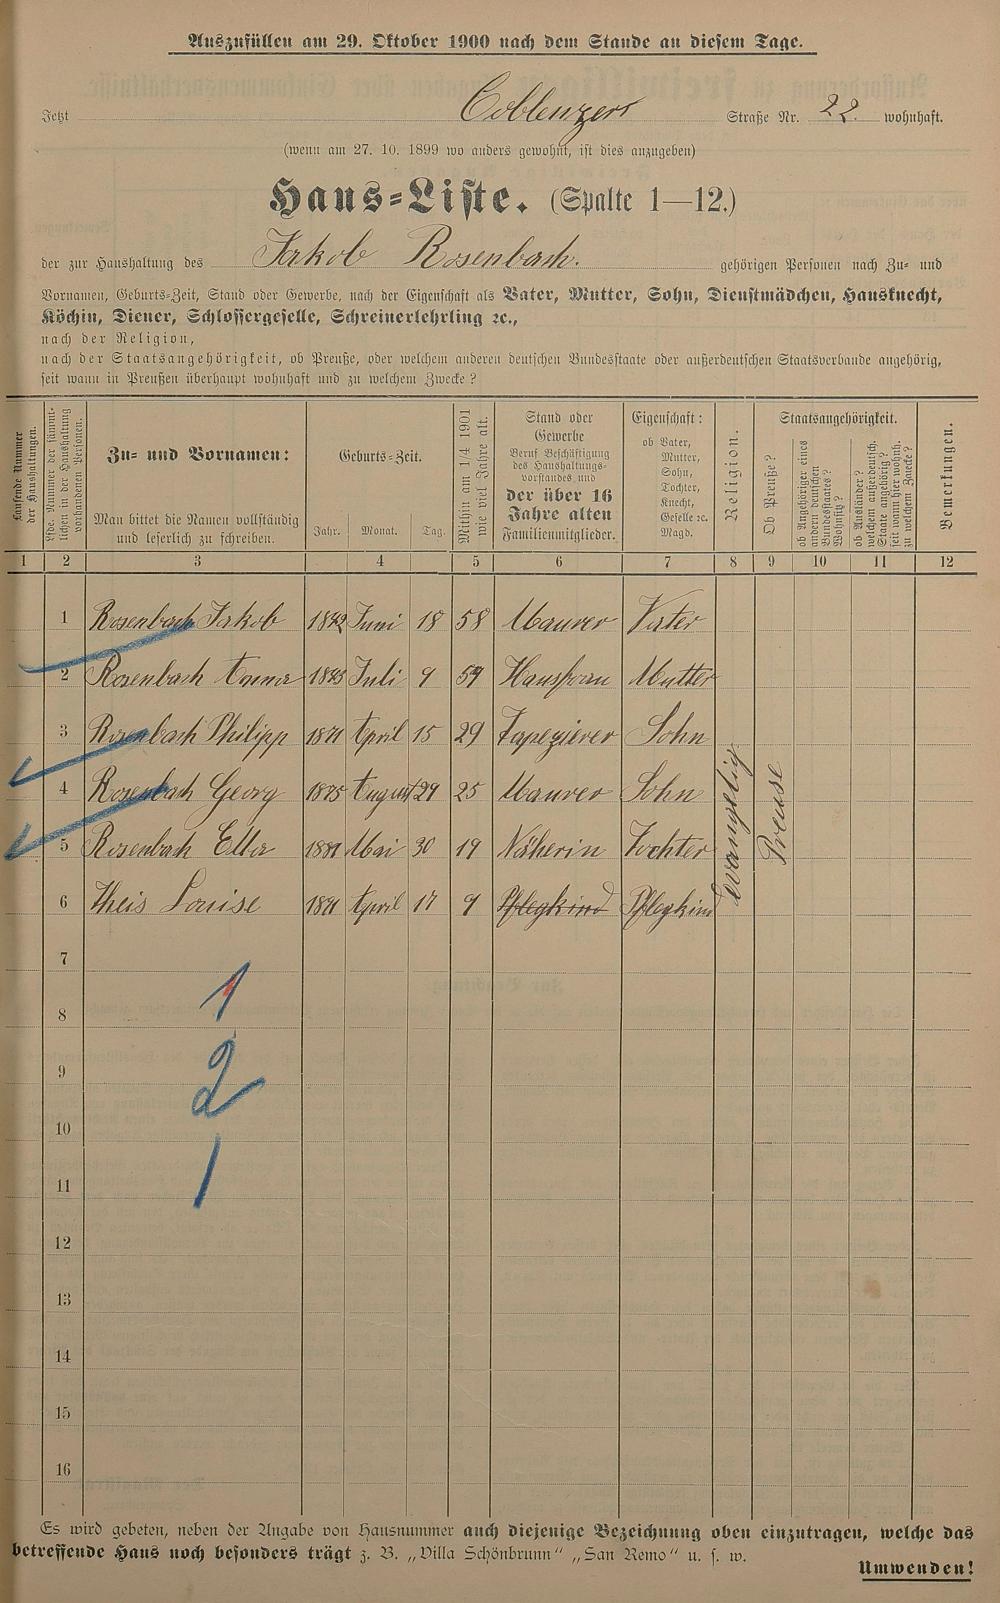 Auszufüllen am 29. Oktober 1900 nach dem Stande an diesem Tage.
Jetzt Coblenzer Straße Nr. 22. wohnhaft.
(wenn am 27. 10. 1899 wo anders gewohnt, ist dies anzugeben)
Haus-Liste. (Spalte 1—12.)
der zur Haushaltung des Jakob Rosenbach. gehörigen Personen nach Zu- und
Vornamen, Geburts-Zeit, Stand oder Gewerbe, nach der Eigenschaft als Vater, Mutter, Sohn, Dienstmädchen, Hausknecht,
Köchin, Diener, Schlossergeselle, Schreinerlehrling ꝛc.,
nach der Religion,
nach der Staatsangehörigkeit, ob Preuße, oder welchem anderen deutschen Bundesstaate oder außerdeutschen Staatsverbande angehörig,
seit wann in Preußen überhaupt wohnhaft und zu welchem Zwecke?
Laufende Nummer
der Haushaltungen.
Lfde. Nummer der sämmt-
lichen in der Haushaltung
vorhandenen Personen.
Zu- und Vornamen:
Man bittet die Namen vollständig
und leserlich zu schreiben.
Geburts-Zeit.
Jahr. Monat. Tag.
Mithin am 1/4 1901
wie viel Jahre alt.
Stand oder
Gewerbe
Beruf Beschäftigung
des Haushaltungs-
vorstandes und
der über 16
Jahre alten
Familienmitglieder.
Eigenschaft:
ob Vater,
Mutter,
Sohn,
Tochter,
Knecht,
Geselle ꝛc.
Magd.
Religion.
Staatsangehörigkeit.
Ob Preuße?
ob Angehöriger eines
andern deutschen
Bundesstaates?
Wohnsitz?
ob Ausländer?
welchem außerdeutsch.
Staate angehörig?
seit wann hier wohnh.
zu welchem Zwecke?
Bemerkungen.
1 2 3 4 5 6 7 8 9 10 11 12
1 Rosenbach Jakob 1842 Juni 18 58 Maurer Vater
2 Rosenbach Anna 1843 Juli 9 57 Hausfrau Mutter
3 Rosenbach Philipp 1871 April 15 29 Tapezierer Sohn
4 Rosenbach Georg 1875 August 29 25 Maurer Sohn
5 Rosenbach Ella 1881 Mai 30 19 Näherin Tochter
6 Theis Louise 1891 April 17 9 Pflegkind Pflegkind
evangelig
Preuse
7
8
9
10
11
12
13
14
15
16
1
2
1
Es wird gebeten, neben der Angabe von Hausnummer auch diejenige Bezeichnung oben einzutragen, welche das
betreffende Haus noch besonders trägt z. B. „Villa Schönbrunn“ „San Remo“ u. s. w.
Umwenden!